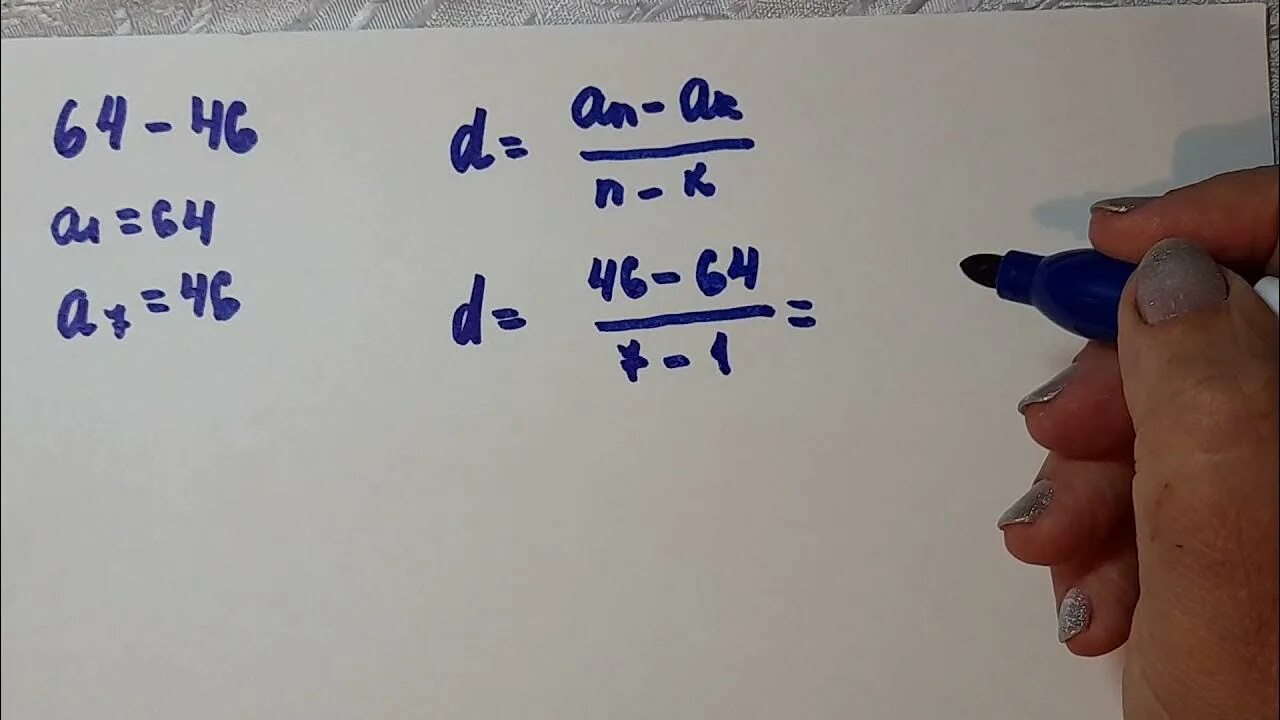 64 - 46
a₁ = 64
a₇ = 46
d = (aₙ - aₖ) / (n - k)
d = (46 - 64) / (7 - 1) =